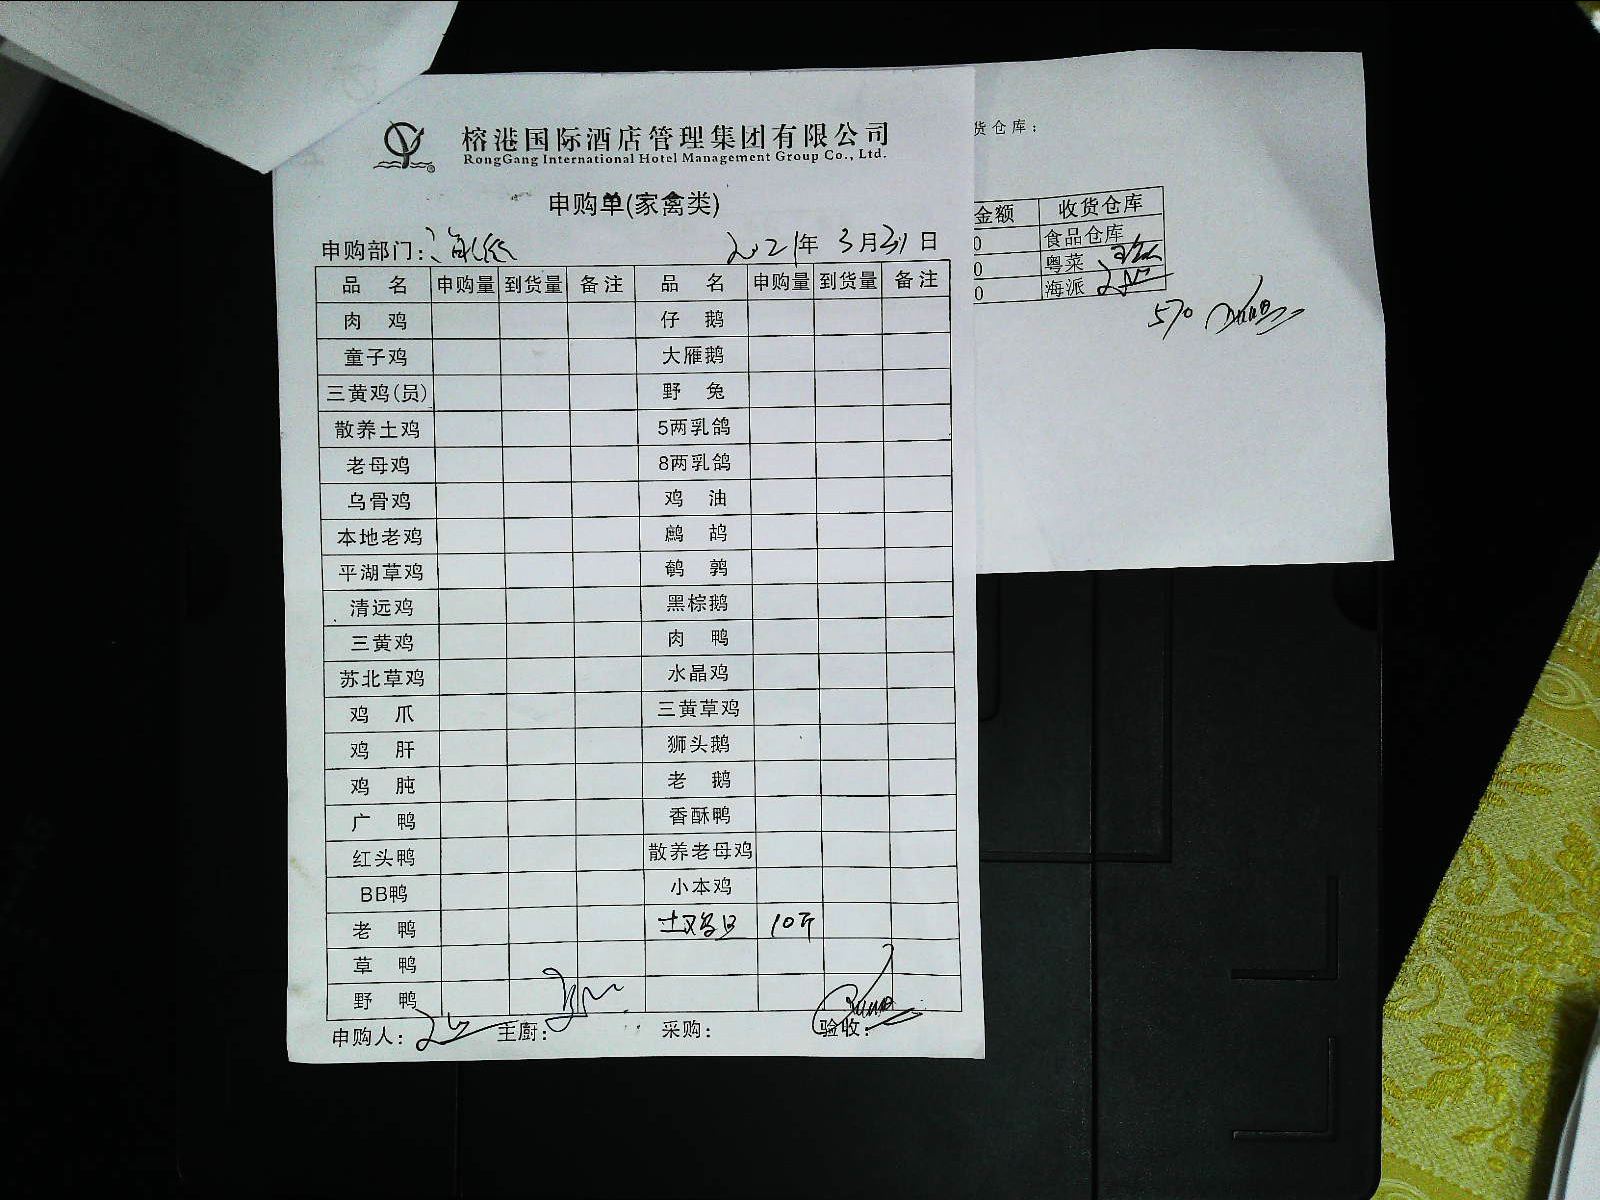 榕港国际酒店管理集团有限公司
RongGang International Hotel Management Group Co., Ltd.
申购单(家禽类)
申购部门: 2021年 3月 日
品 名 申购量 到货量 备注 品 名 申购量 到货量 备注
肉 鸡 仔 鹅
童子鸡 大雁鹅
三黄鸡(员) 野 兔
散养土鸡 5两乳鸽
老母鸡 8两乳鸽
乌骨鸡 鸡 油
本地老鸡 鹧 鸪
平湖草鸡 鹌 鹑
清远鸡 黑棕鹅
三黄鸡 肉 鸭
苏北草鸡 水晶鸡
鸡 爪 三黄草鸡
鸡 肝 狮头鹅
鸡 肫 老 鹅
广 鸭 香酥鸭
红头鸭 散养老母鸡
BB鸭 小本鸡
老 鸭 10斤
草 鸭
野 鸭
申购人: 主厨: 采购: 验收:
货仓库:
金额 收货仓库
0 食品仓库
0 粤菜
0 海派
570